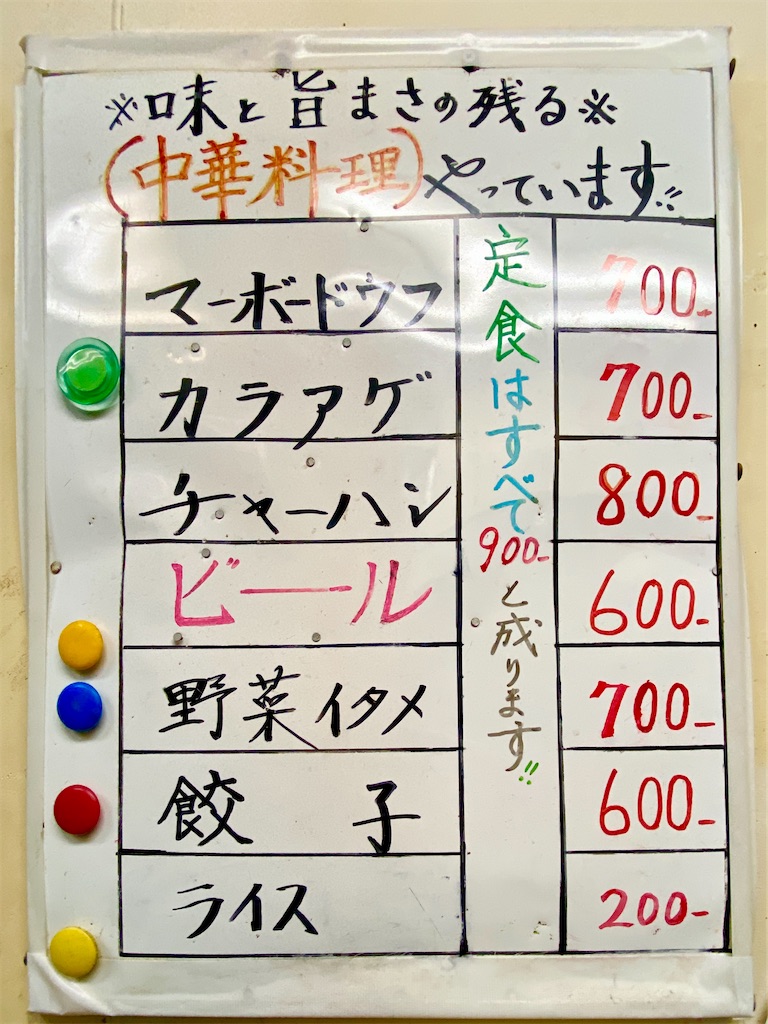 ※味と旨まさの残る※
(中華料理)やっています!!
マーボードウフ 700-
カラアゲ 700-
チャーハン 800-
ビール 600-
野菜イタメ 700-
餃子 600-
ライス 200-
定食はすべて900-と成ります!!